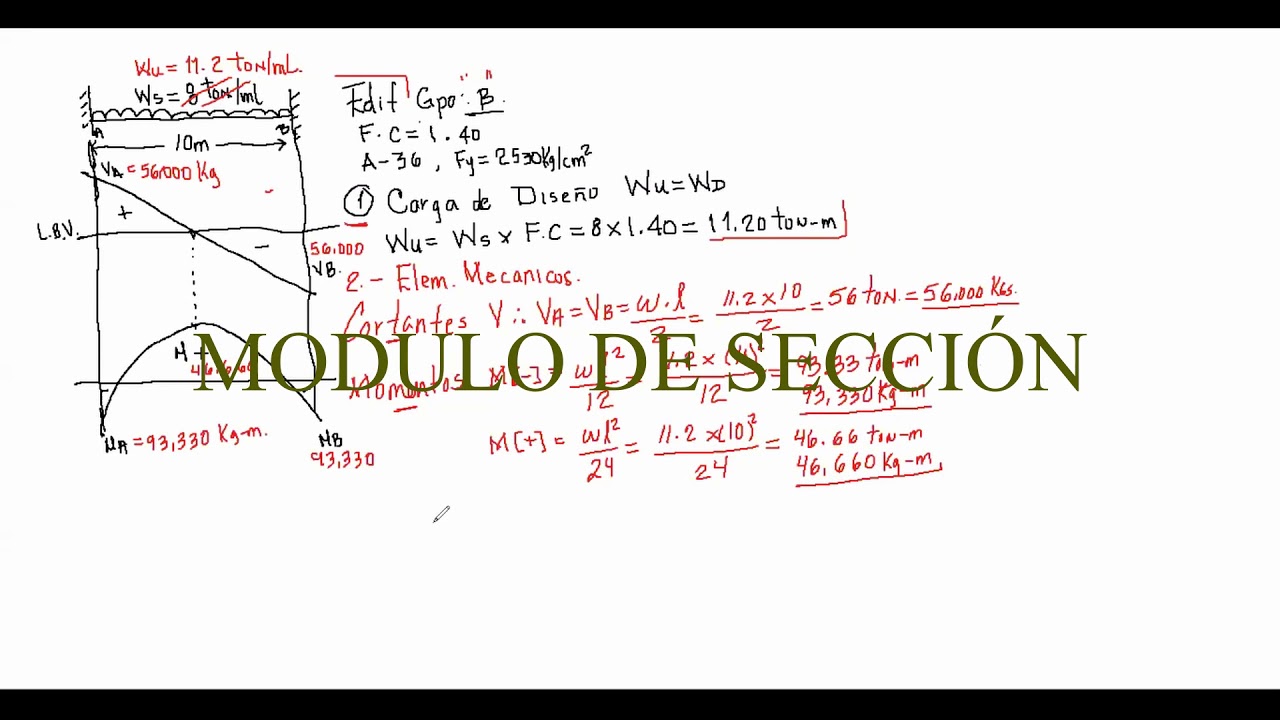 Wu = 11.2 TON/mL.
Ws = 8 ton/ml
A
B
10m
VA = 56,000 Kg
-
+
L.B.V.
-
56,000
VB.
M +
MA = 93,330 Kg-m.
MB
93,330
Edif Gpo: "B".
F.C = 1.40
A-36, Fy = 2530 Kg/cm²
① Carga de Diseño Wu = WD
Wu = Ws x F.C = 8 x 1.40 = 11.20 TON-m
2.- Elem. Mecanicos.
Cortantes V ∴ VA = VB = w.l/2 = 11.2 x 10/2 = 56 TON. = 56,000 KGs.
MODULO DE SECCIÓN
Momentos M[-] = wl²/12 = 11.2 x (10)²/12 = 93.33 Ton-m
93,330 Kg-m
M[+] = wl²/24 = 11.2 x (10)²/24 = 46.66 TON-m
46,660 Kg-m